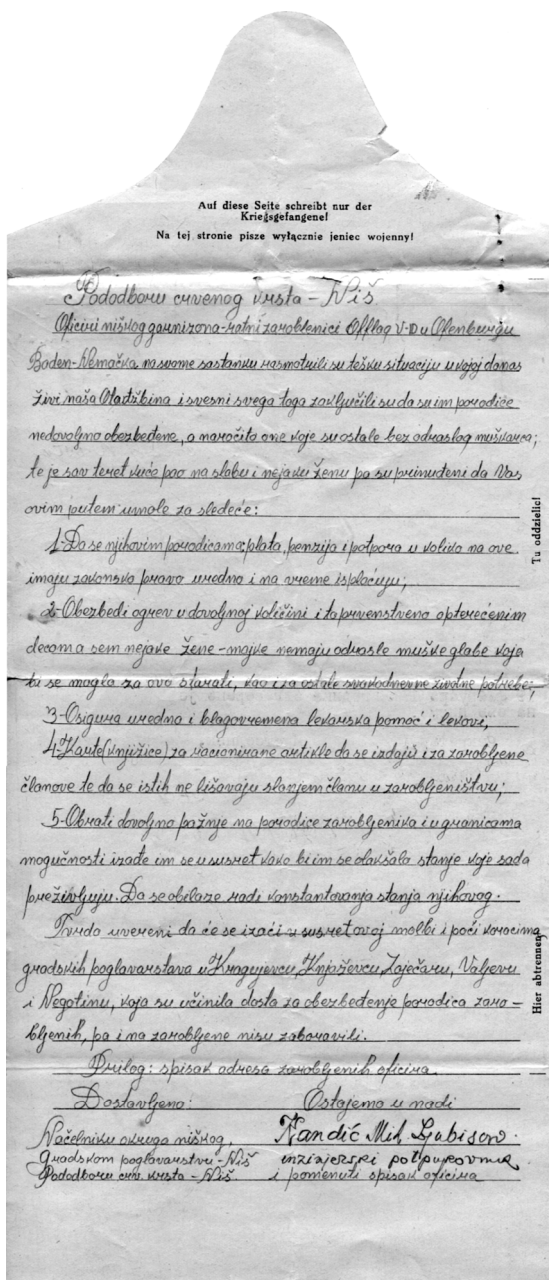 Auf diese Seite schreibt nur der
Kriegsgefangene!
Na tej stronie pisze wyłącznie jeniec wojenny!
Pododboru crvenog krsta – Niš
Oficiri niškog garnizona-ratni zarobljenici Offlag V-D u Ofenburgu
Baden-Nemačka, na svome sastanku rasmotrili su tešku situaciju u kojoj danas
živi naša Otadžbina i svesni svega toga zaključili su da su im porodice
nedovoljno obezbeđene, a naročito one koje su ostale bez odraslog muškarca;
te je sav teret kuće pao na slabu i nejaku ženu pa su prinuđeni da Vas
ovim putem umole za sledeće:
1-Da se njihovim porodicama, plata, penzija i potpora u koliko na ove
imaju zakonsko pravo uredno i na vreme isplaćuju;
2-Obezbedi ogrev u dovoljnoj količini i to prvenstveno opterećenim
decom a sem nejake žene-majke nemaju odrasle muške glabe koja
bi se mogla za ovo starati, kao i za ostale svakodnevne životne potrebe;
3-Osigura uredna i blagovremena lekarska pomoć i lekovi;
4-Karte (knjižice) za racionirane artikle da se izdaju i za zarobljene
članove te da se istih ne lišavaju slanjem članu u zarobljeništvu;
5-Obrati dovoljno pažnje na porodice zarobljenika i u granicama
mogućnosti izađe im se u susret kako bi im se olakšalo stanje koje sada
preživljuju. Da se obilaze radi konstantovanja stanja njihovog.
Tvrdo uvereni da će se izaći u susret ovoj molbi i poći koracima
gradskih poglavarstava u Kragujevcu, Knjaževcu, Zaječaru, Valjevu
i Negotinu, koja su učinila dosta za obezbeđenje porodica zaro-
bljenih, pa i na zarobljene nisu zaboravili.
Prilog: spisak adresa zarobljenih oficira.
Dostavljeno: Ostajemo u nadi
Načelniku okruga niškog, Nandić Mih. Ljubisav
Gradskom poglavarstvu-Niš inžinjerski potpukovnik
Pododboru crv. krsta-Niš. i pomenuti spisak oficira
Tu oddzielic!
Hier abtrennen